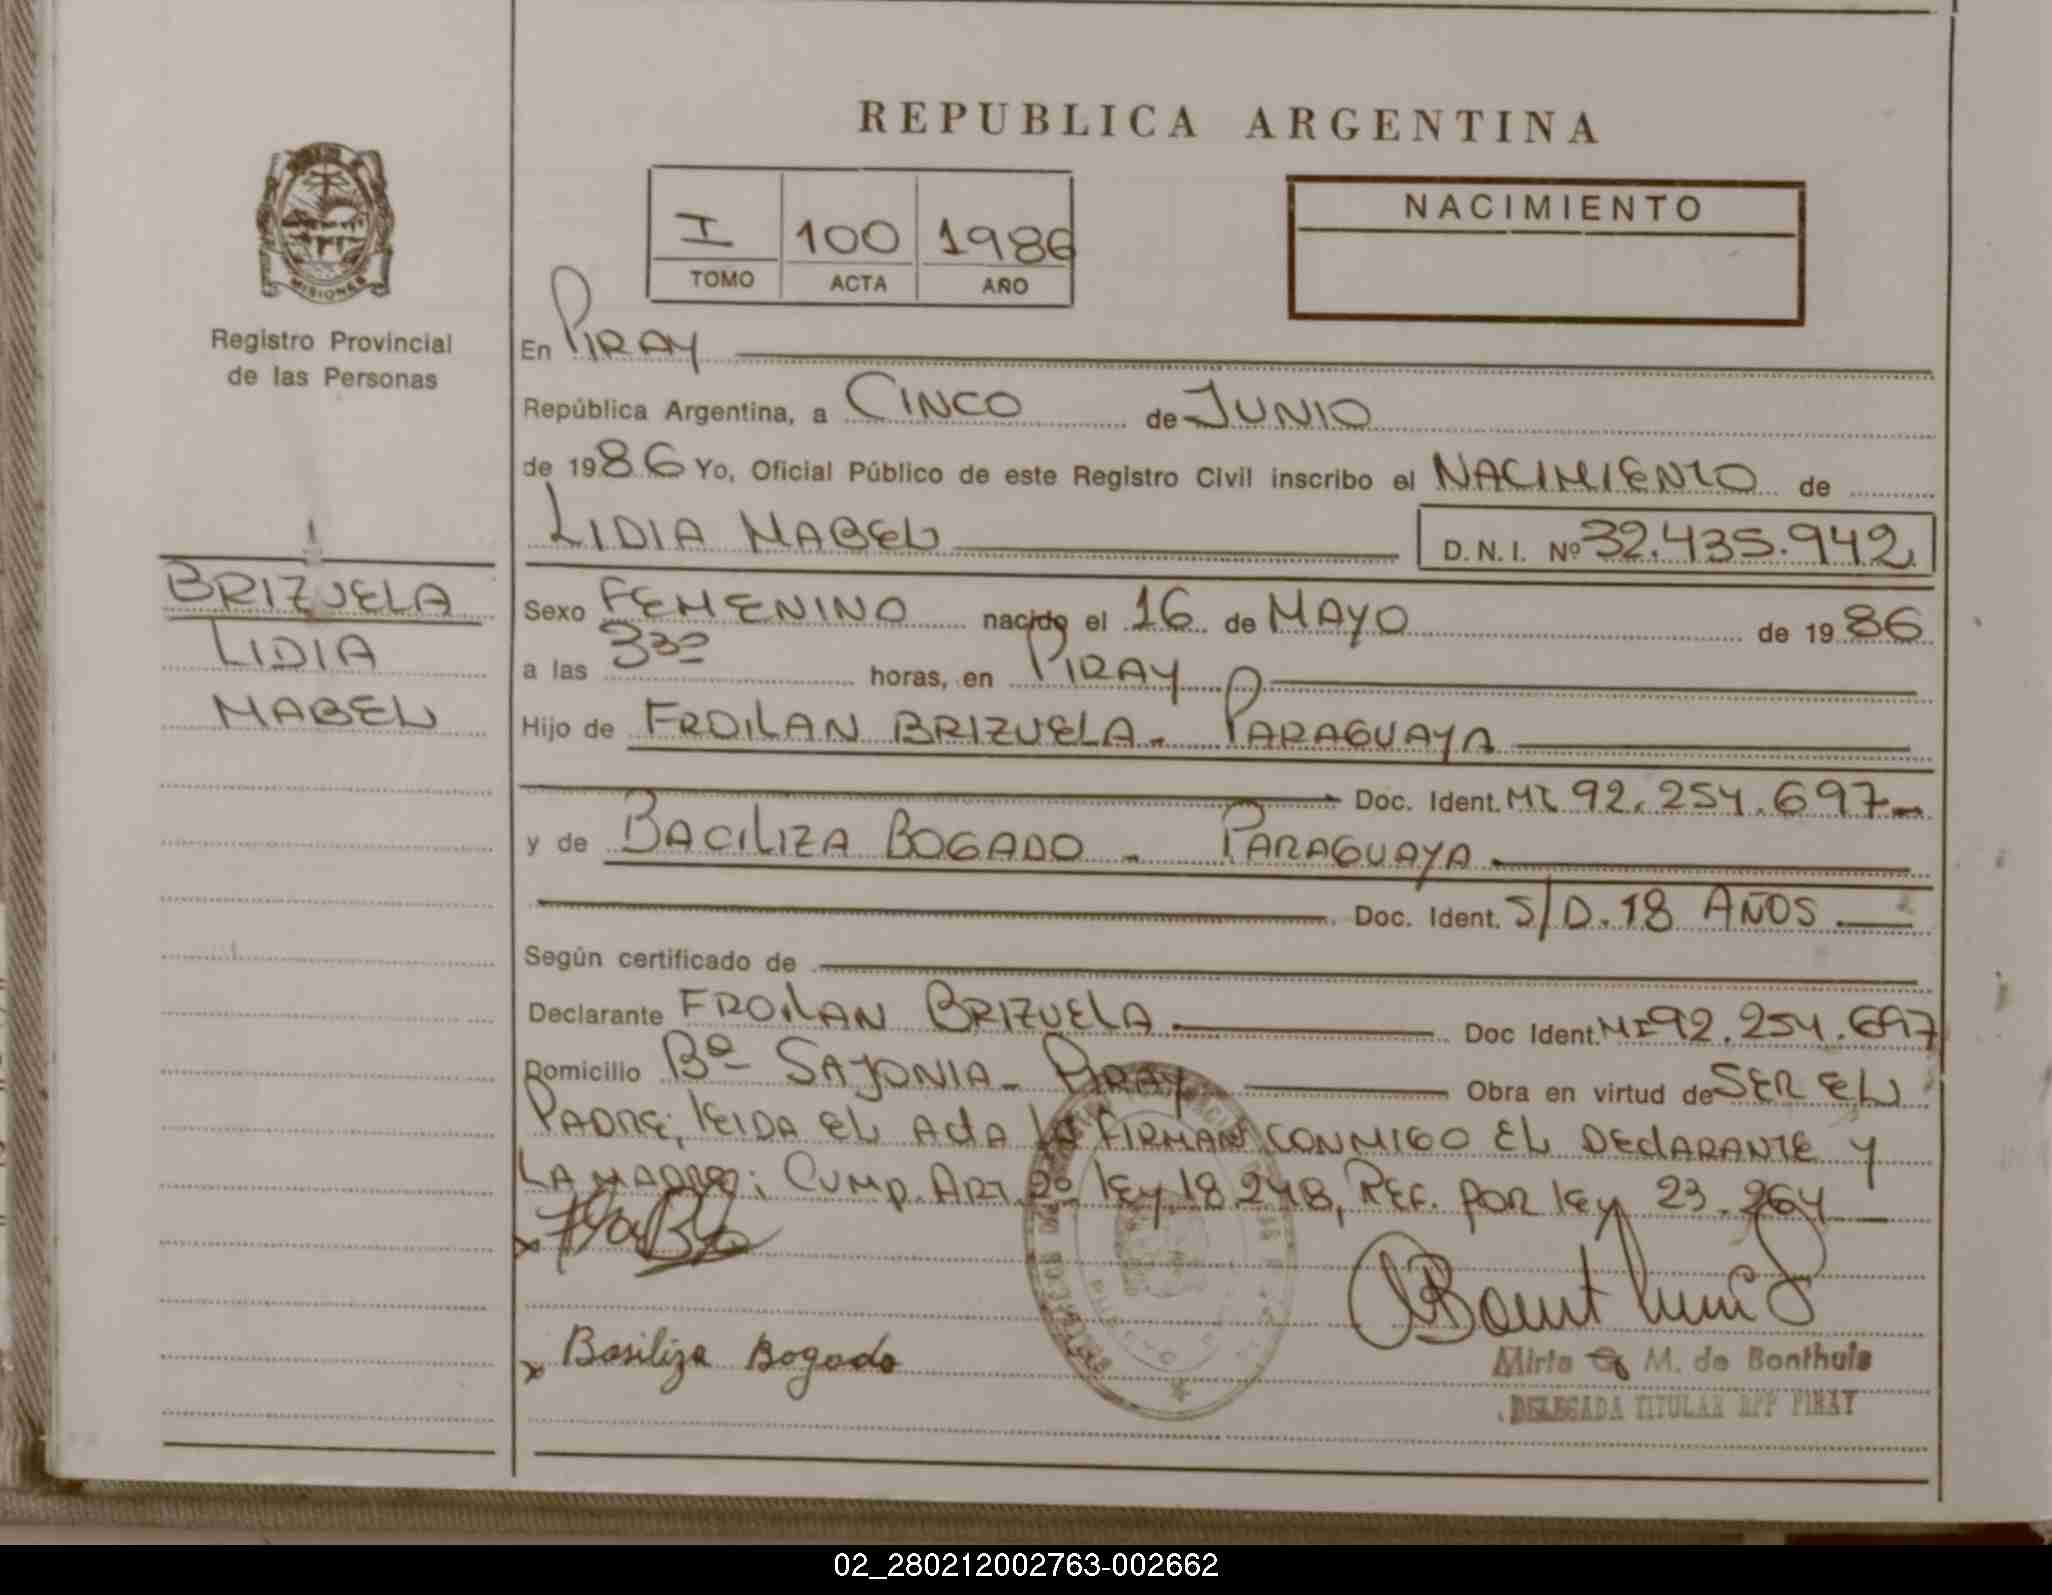 REPUBLICA ARGENTINA
MISIONES
Registro Provincial
de las Personas
I 100 1986
TOMO ACTA AÑO
NACIMIENTO
En PIRAY
República Argentina, a CINCO de JUNIO
de 1986 Yo, Oficial Público de este Registro Civil inscribo el NACIMIENTO de
LIDIA MABEL D.N.I. Nº 32.435.942
BRIZUELA
LIDIA
MABEL
Sexo FEMENINO nacido el 16 de MAYO de 1986
a las 3³⁰ horas, en PIRAY
Hijo de FROILAN BRIZUELA - PARAGUAYA
Doc. Ident. MI 92.254.697
y de BACILIZA BOGADO - PARAGUAYA
Doc. Ident. S/D. 18 AÑOS
Según certificado de
Declarante FROILAN BRIZUELA Doc Ident. MI 92.254.697
Domicilio Bº SAJONIA - PIRAY Obra en virtud de SER EL
PADRE; LEIDA EL ACTA LA FIRMAN CONMIGO EL DECLARANTE Y
LA MADRE; CUMP. ART. 2º LEY 18.248, REF. POR LEY 23.264
Basiliza Bogado
Mirta M. de Bonthuis
DELEGADA TITULAR RPP PIRAY
02_280212002763-002662